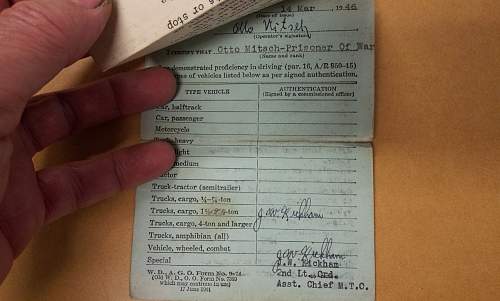 s or stop
14 Mar , 1946
(Date of issue)
Otto Nitsch
(Operator's signature)
I CERTIFY THAT Otto Mitsch-Prisoner Of War
(Name and rank)
demonstrated proficiency in driving (par. 16, A/R 850-15)
types of vehicles listed below as per signed authentication.
TYPE VEHICLE AUTHENTICATION
(Signed by a commissioned officer)
Car, halftrack
Car, passenger
Motorcycle
heavy
light
medium
Tractor
Truck-tractor (semitrailer)
Trucks, cargo, ¼-¾-ton
Trucks, cargo, -ton J W Rickham
Trucks, cargo, 4-ton and larger
Trucks, amphibian (all)
Vehicle, wheeled, combat
Special J W Rickham
J.W. Rickham
2nd Lt. Ord.
Asst. Chief M.T.C.
W. D., A. G. O. Form No. 9-74
(Old W. D., O. O. Form No. 7360
which may continue in use)
17 June 1941